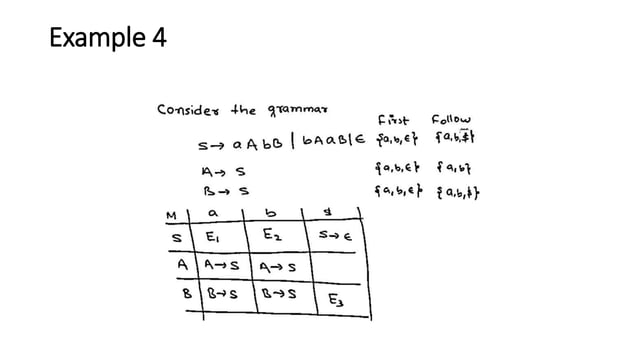 Example 4
Consider the grammar
First Follow
S→ aAbB | bAaB | ϵ {a,b,ϵ} {a,b,$}
A→ S {a,b,ϵ} {a,b}
B→ S {a,b,ϵ} {a,b,$}
M a b $
S E₁ E₂ S→ϵ
A A→S A→S
B B→S B→S E₃